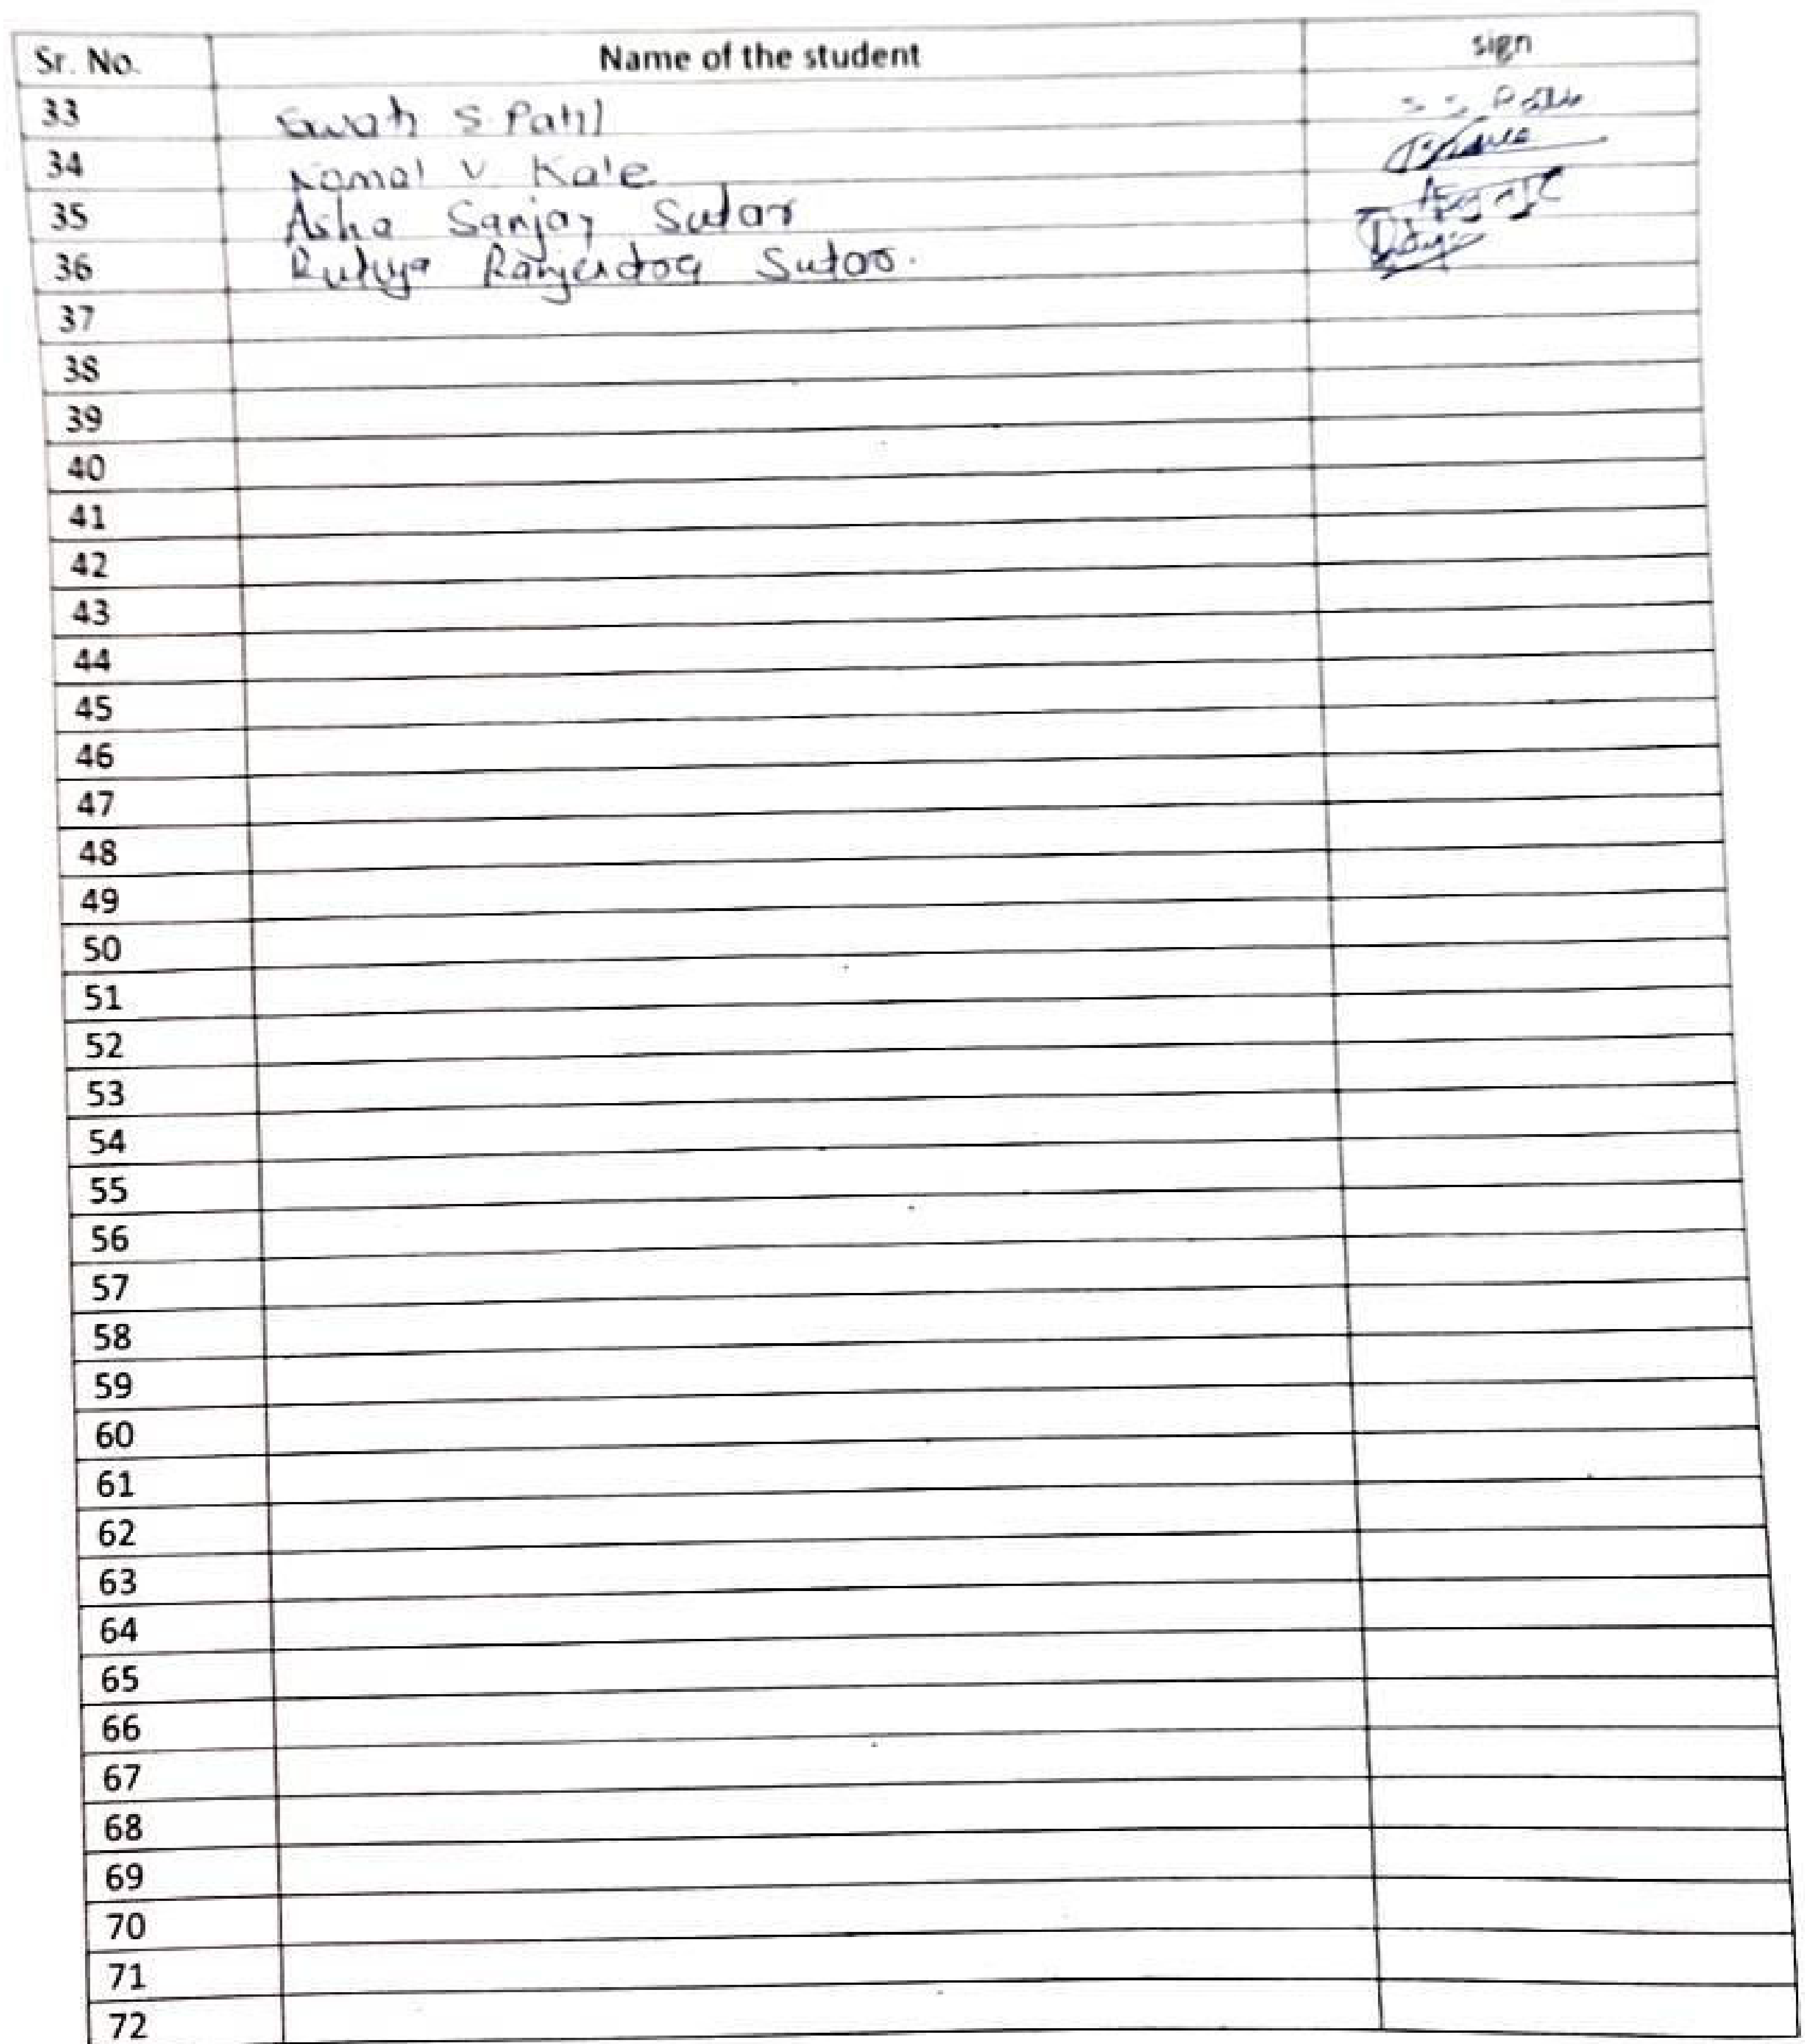 Sr. No. Name of the student sign
33 Swati S. Patil S S Patil
34 Komal V Kale
35 Asha Sanjay Sutar
36 Rutuja Ranjendra Sutar.
37
38
39
40
41
42
43
44
45
46
47
48
49
50
51
52
53
54
55
56
57
58
59
60
61
62
63
64
65
66
67
68
69
70
71
72